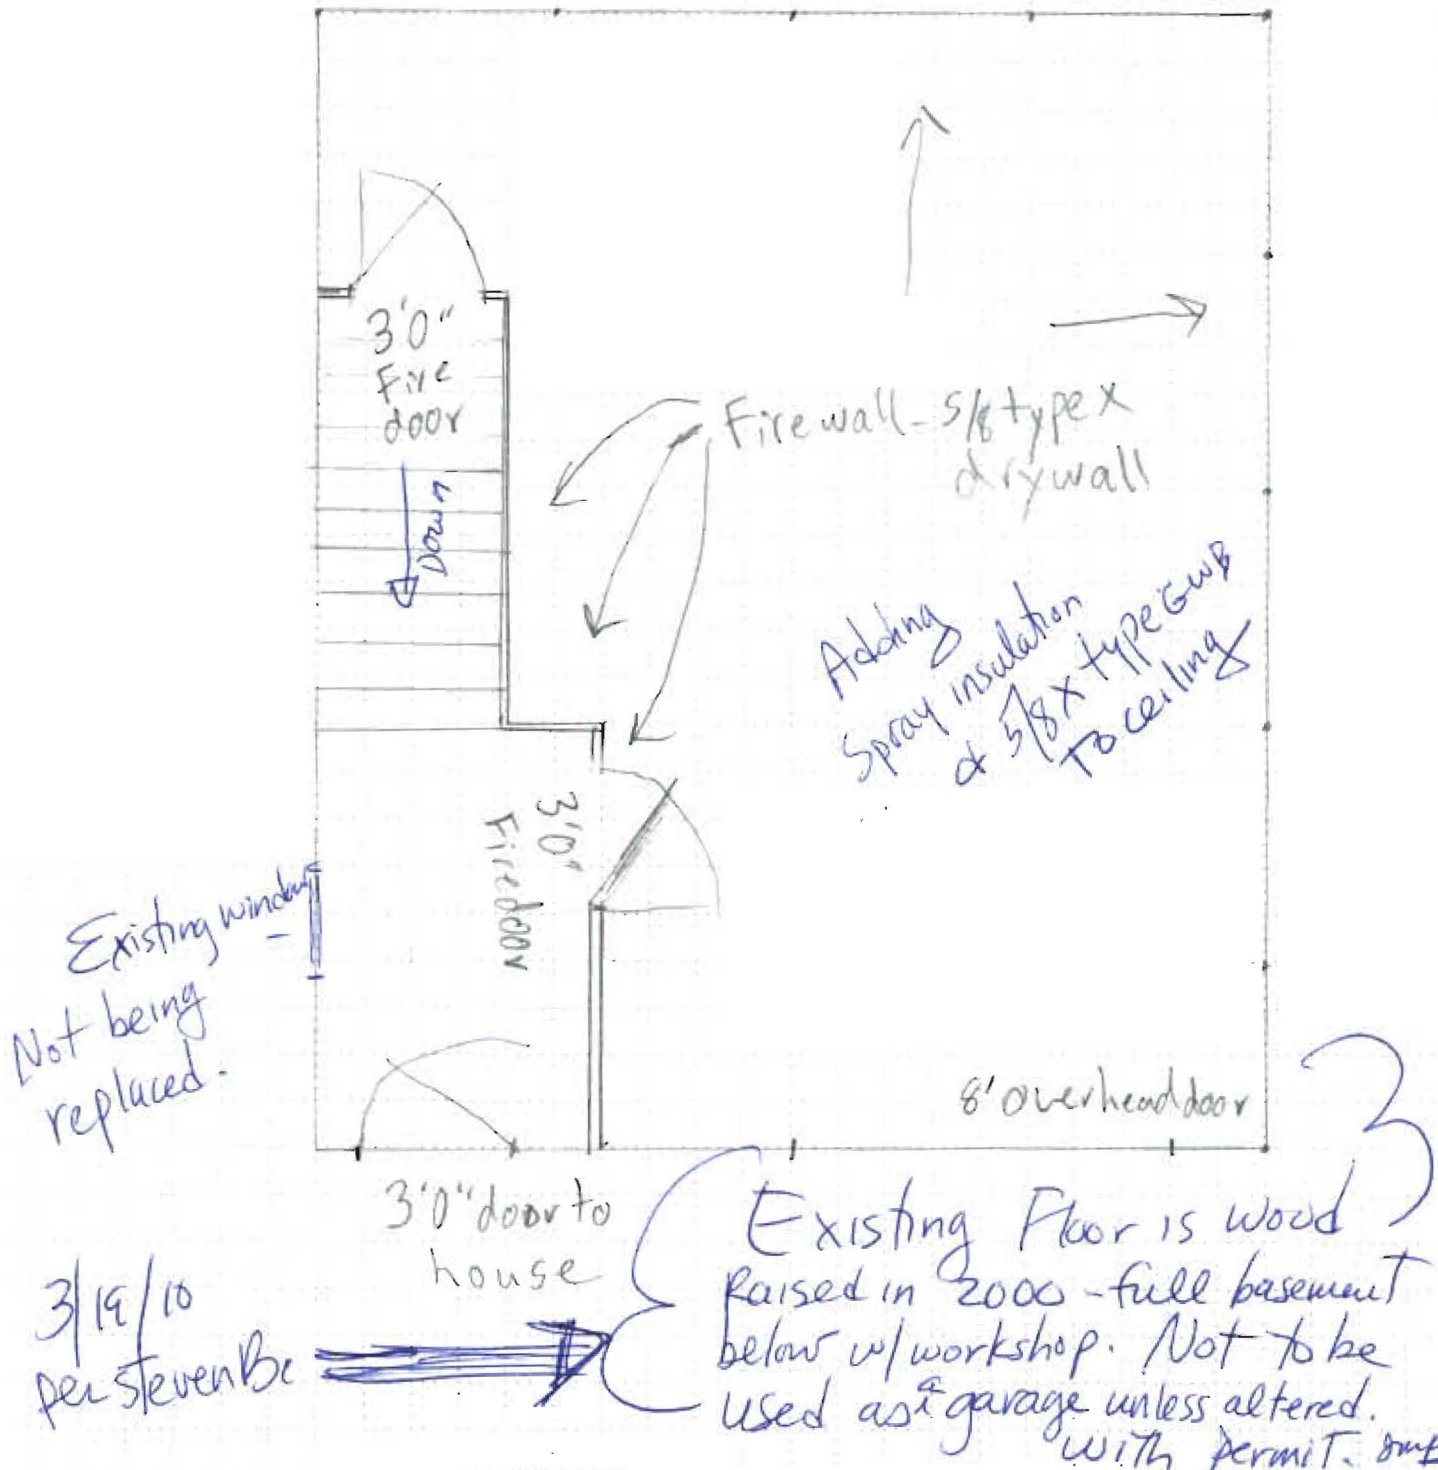 3'0"
Fire
door
Down
Firewall - 5/8 type X
drywall
Adding
Spray insulation
& 5/8 X type GWB
To ceiling
3'0"
Fire door
Existing window -
Not being
replaced.
8' overhead door
3'0" door to
house
Existing Floor is wood
Raised in 2000 - full basement
below w/ workshop. Not to be
used as a garage unless altered.
with permit.
3/19/10
per Steven